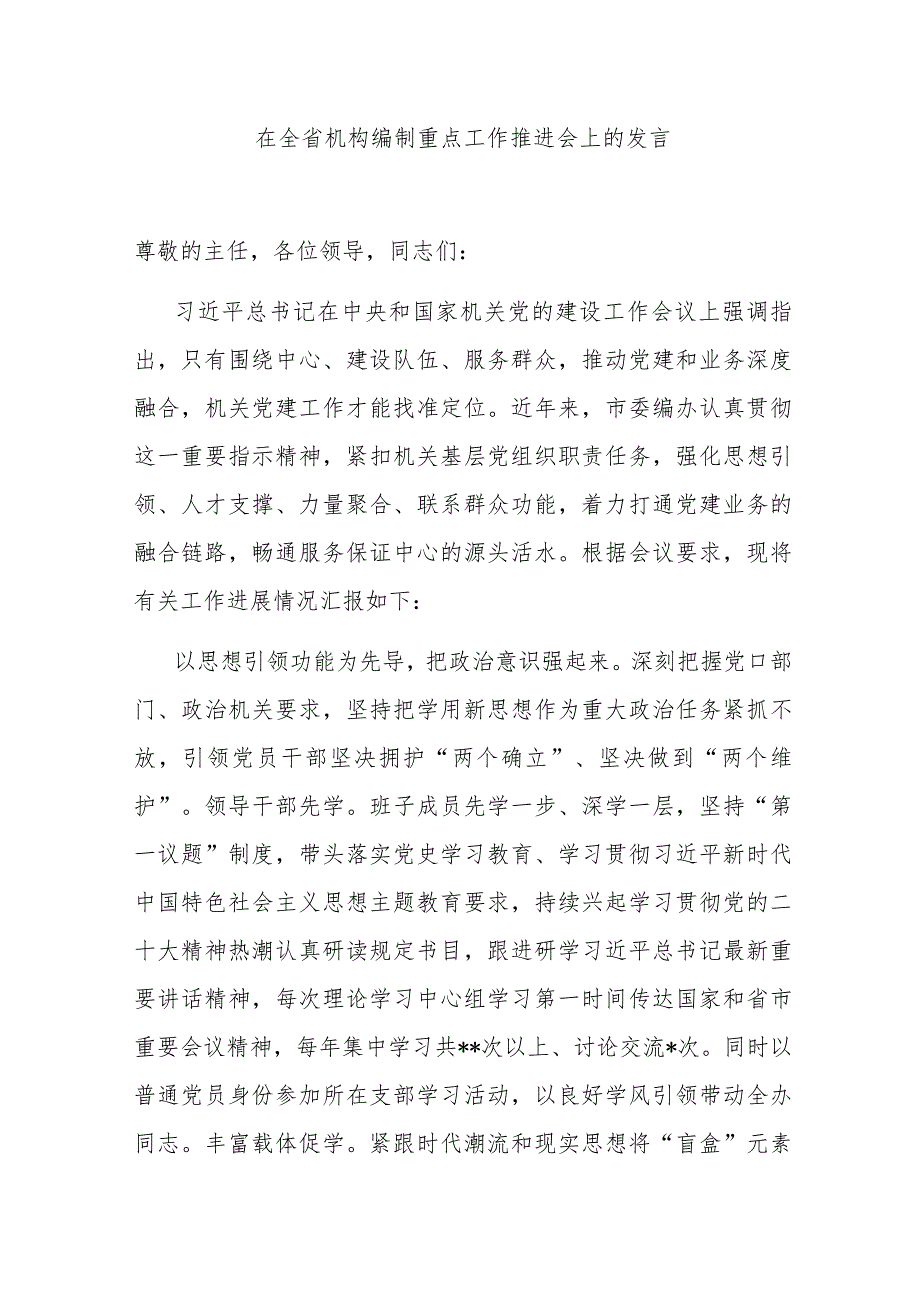 在全省机构编制重点工作推进会上的发言
尊敬的主任，各位领导，同志们：
习近平总书记在中央和国家机关党的建设工作会议上强调指
出，只有围绕中心、建设队伍、服务群众，推动党建和业务深度
融合，机关党建工作才能找准定位。近年来，市委编办认真贯彻
这一重要指示精神，紧扣机关基层党组织职责任务，强化思想引
领、人才支撑、力量聚合、联系群众功能，着力打通党建业务的
融合链路，畅通服务保证中心的源头活水。根据会议要求，现将
有关工作进展情况汇报如下：
以思想引领功能为先导，把政治意识强起来。深刻把握党口部
门、政治机关要求，坚持把学用新思想作为重大政治任务紧抓不
放，引领党员干部坚决拥护“两个确立”、坚决做到“两个维
护”。领导干部先学。班子成员先学一步、深学一层，坚持“第
一议题”制度，带头落实党史学习教育、学习贯彻习近平新时代
中国特色社会主义思想主题教育要求，持续兴起学习贯彻党的二
十大精神热潮认真研读规定书目，跟进研学习近平总书记最新重
要讲话精神，每次理论学习中心组学习第一时间传达国家和省市
重要会议精神，每年集中学习共**次以上、讨论交流*次。同时以
普通党员身份参加所在支部学习活动，以良好学风引领带动全办
同志。丰富载体促学。紧跟时代潮流和现实思想将“盲盒”元素